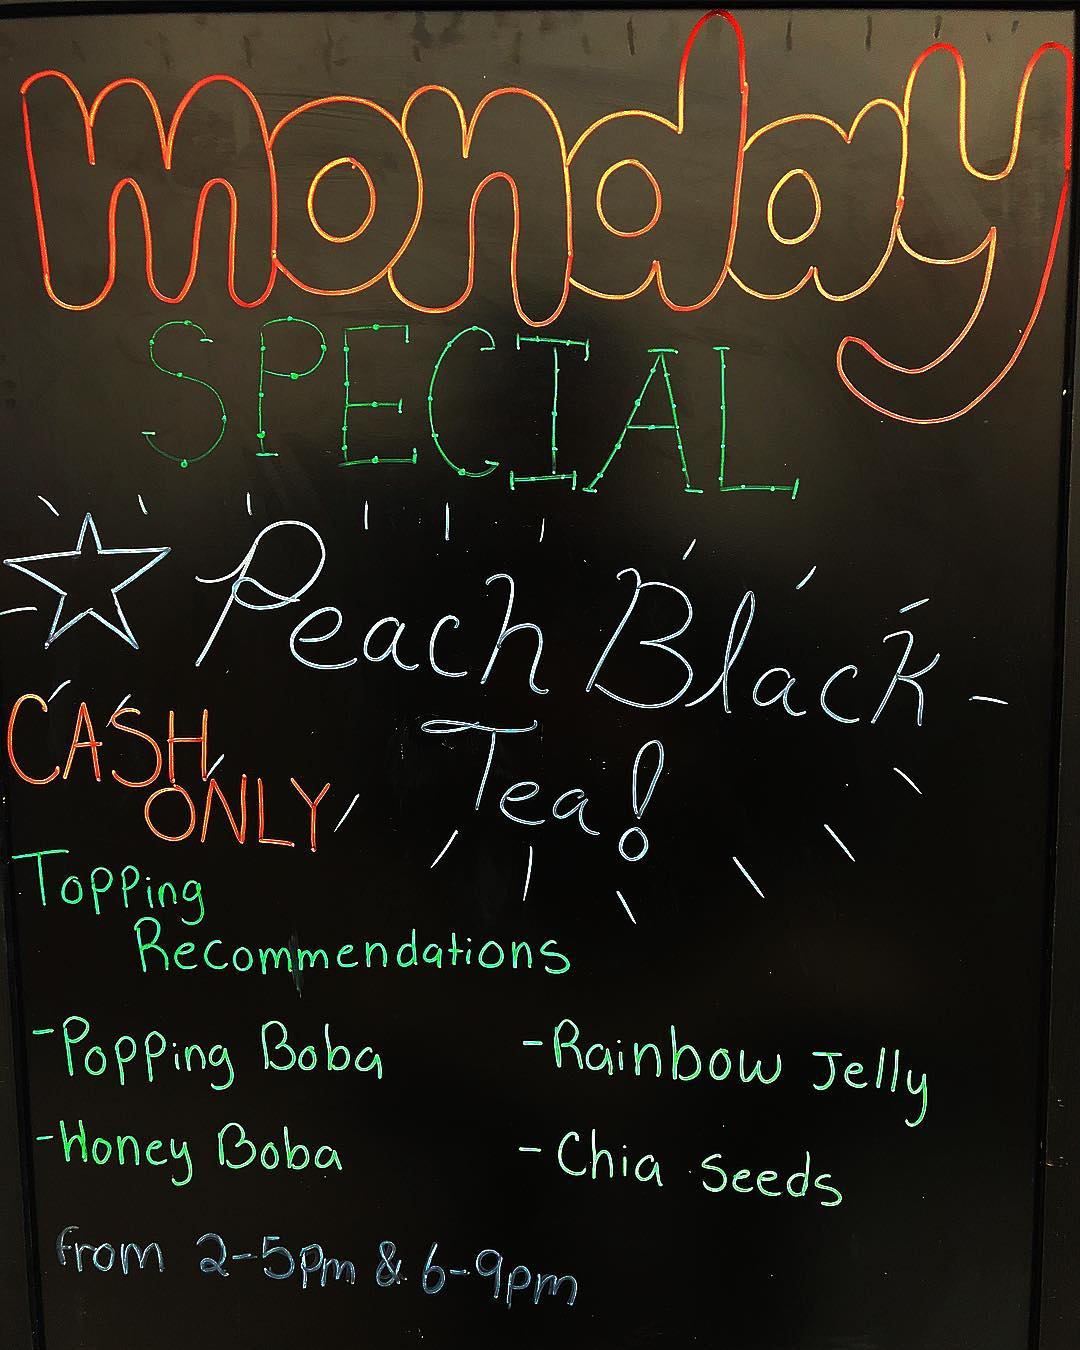 monday
SPECIAL
Peach Black -
Tea!
CASH
ONLY
Topping
Recommendations
-Popping Boba
-Rainbow Jelly
-Honey Boba
-Chia Seeds
from 2-5pm & 6-9pm